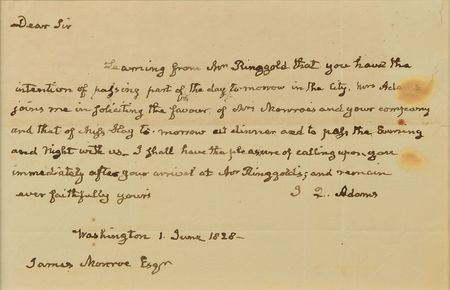 Dear Sir
Learning from Mr Ringgold that you have the
intention of passing part of the day to-morrow in the City, Mrs Adams
joins me in soliciting the favour of Mrs Monroe's and your company
and that of Miss Hay to-morrow at dinner and to pass the Evening
and Night with us_ I shall have the pleasure of calling upon you
immediately after your arrival at Mr Ringgold's; and remain
ever faithfully yours
J. Q. Adams
Washington 1. June 1828_
James Monroe Esqr